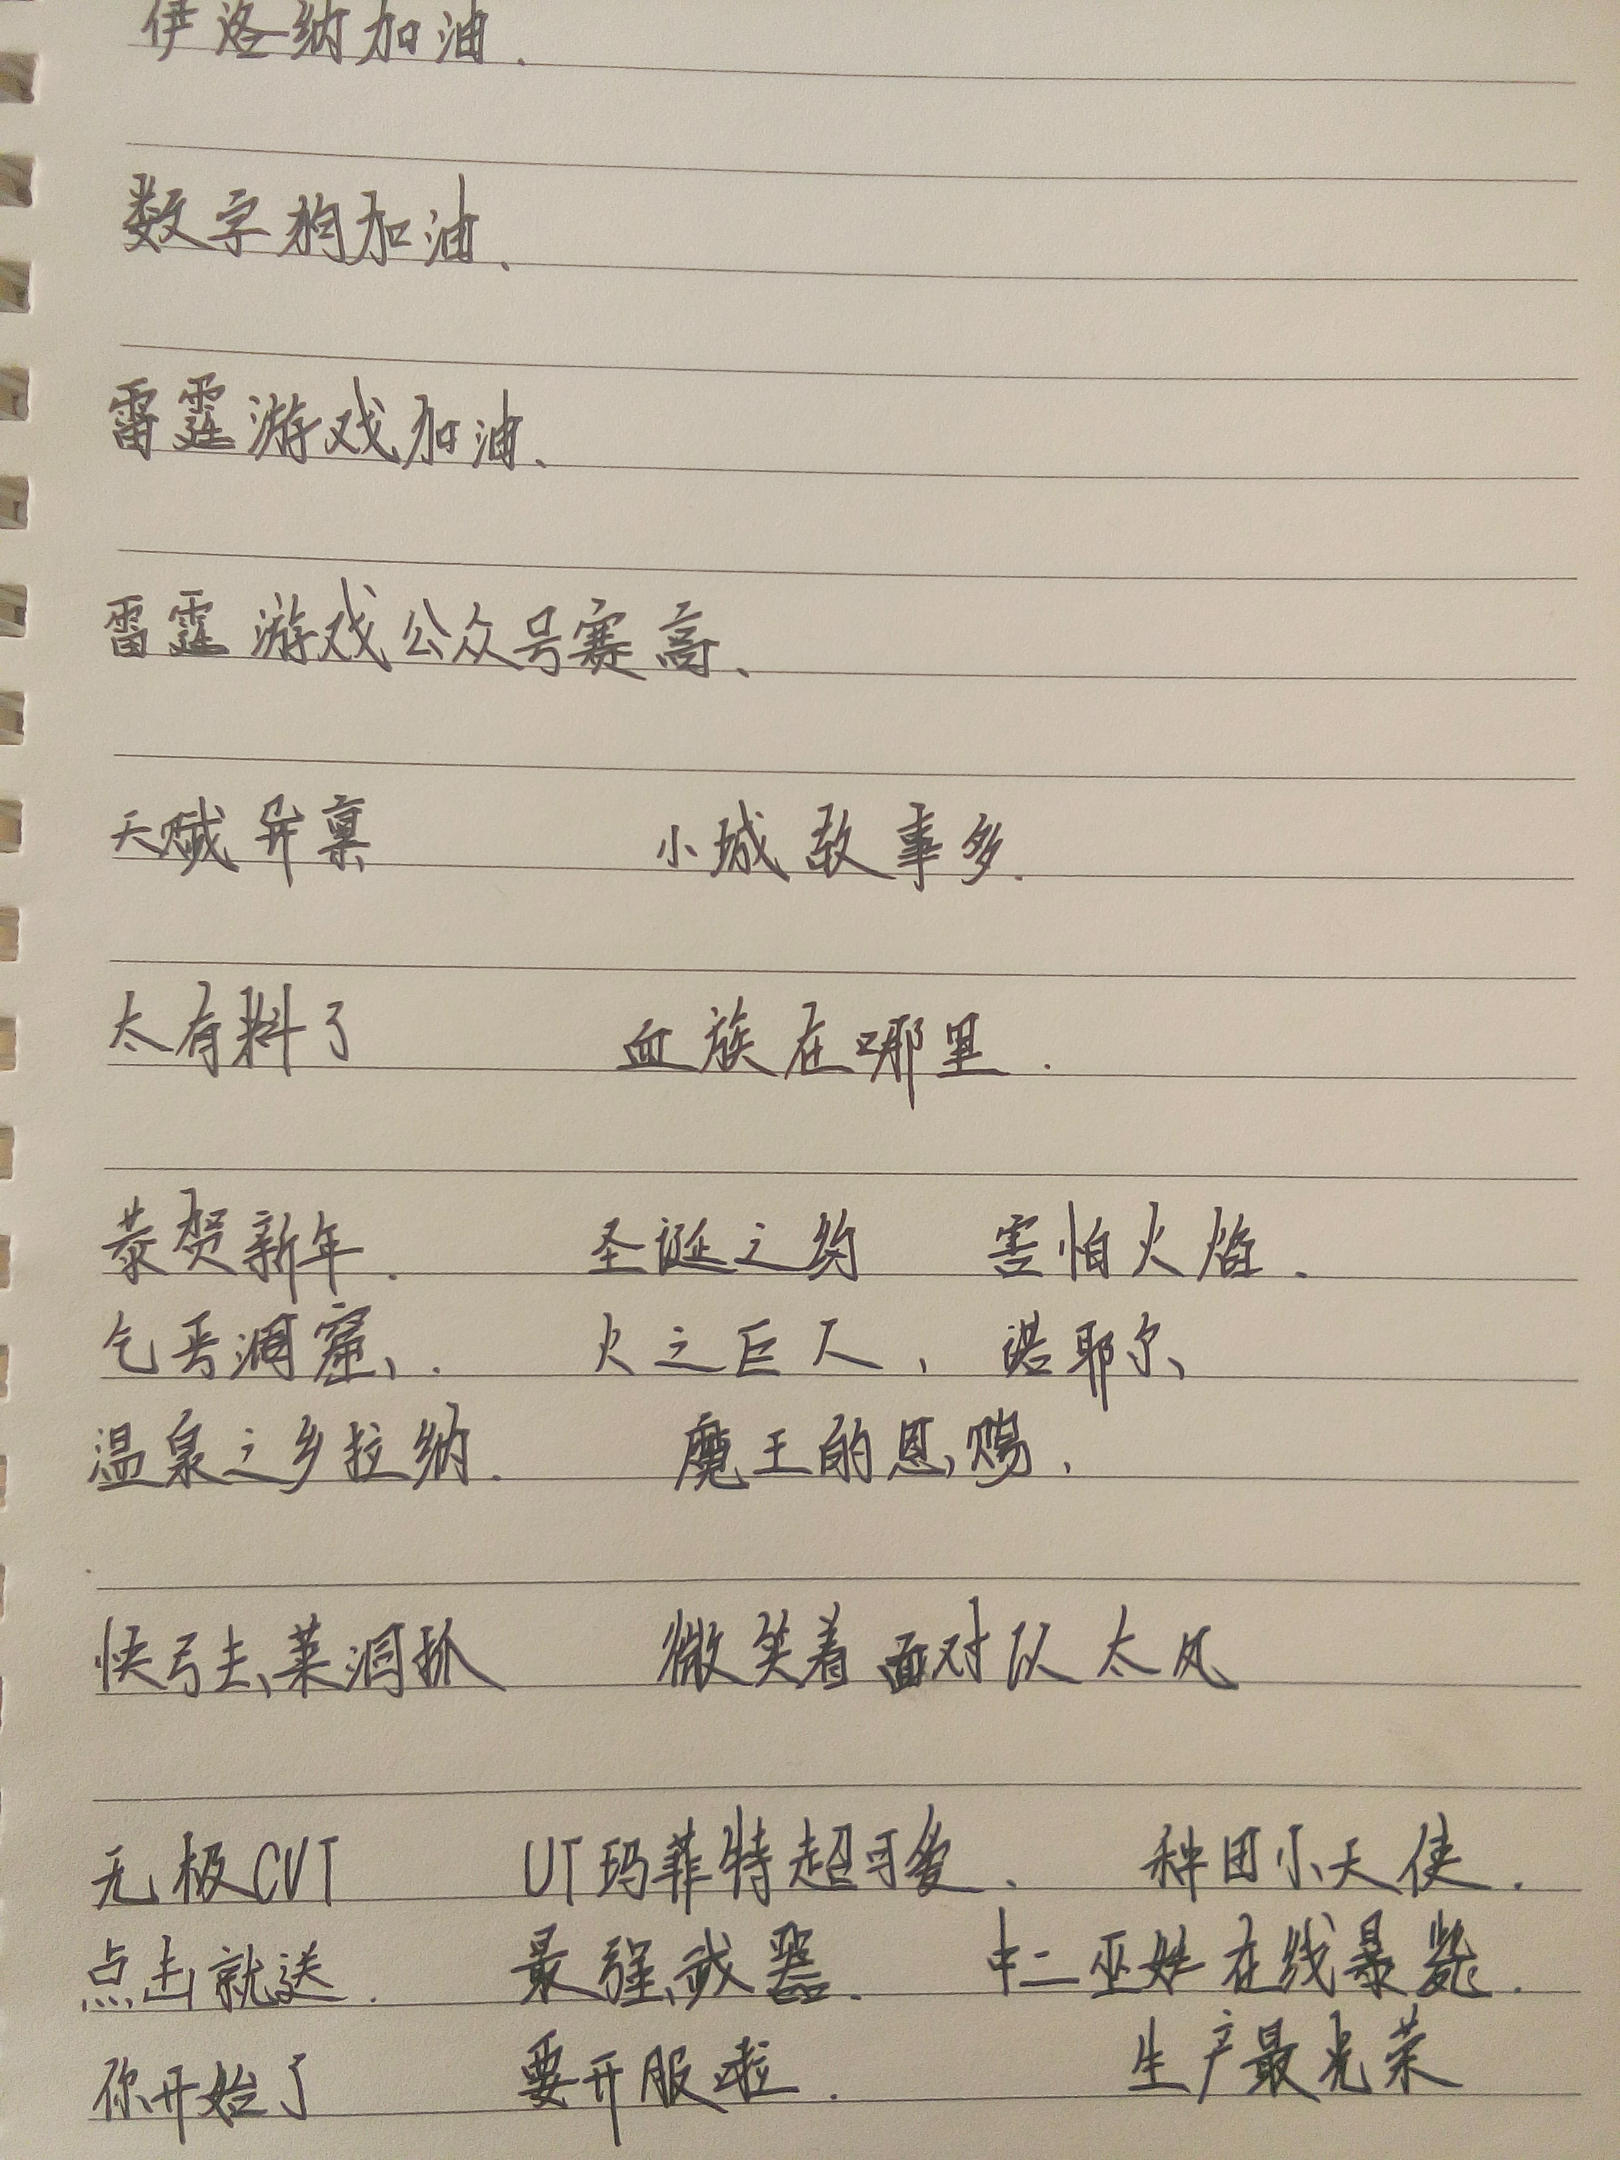 伊洛纳加油.
数字狗加油、
雷霆游戏加油、
雷霆游戏公众号赛高、
天赋异禀 小城故事多.
太有料了 血族在哪里.
恭贺新年. 圣诞之约 害怕火焰.
乞丐洞窟、. 火之巨人、诺耶尔、
温泉之乡拉纳. 魔王的恩赐、
快去莱洞抓 微笑着面对以太风
无极CVT UT玛菲特超可爱、 种田小天使.
点击就送. 最强武器. 中二巫妹在线暴毙.
你开始了 要开服啦. 生产最光荣